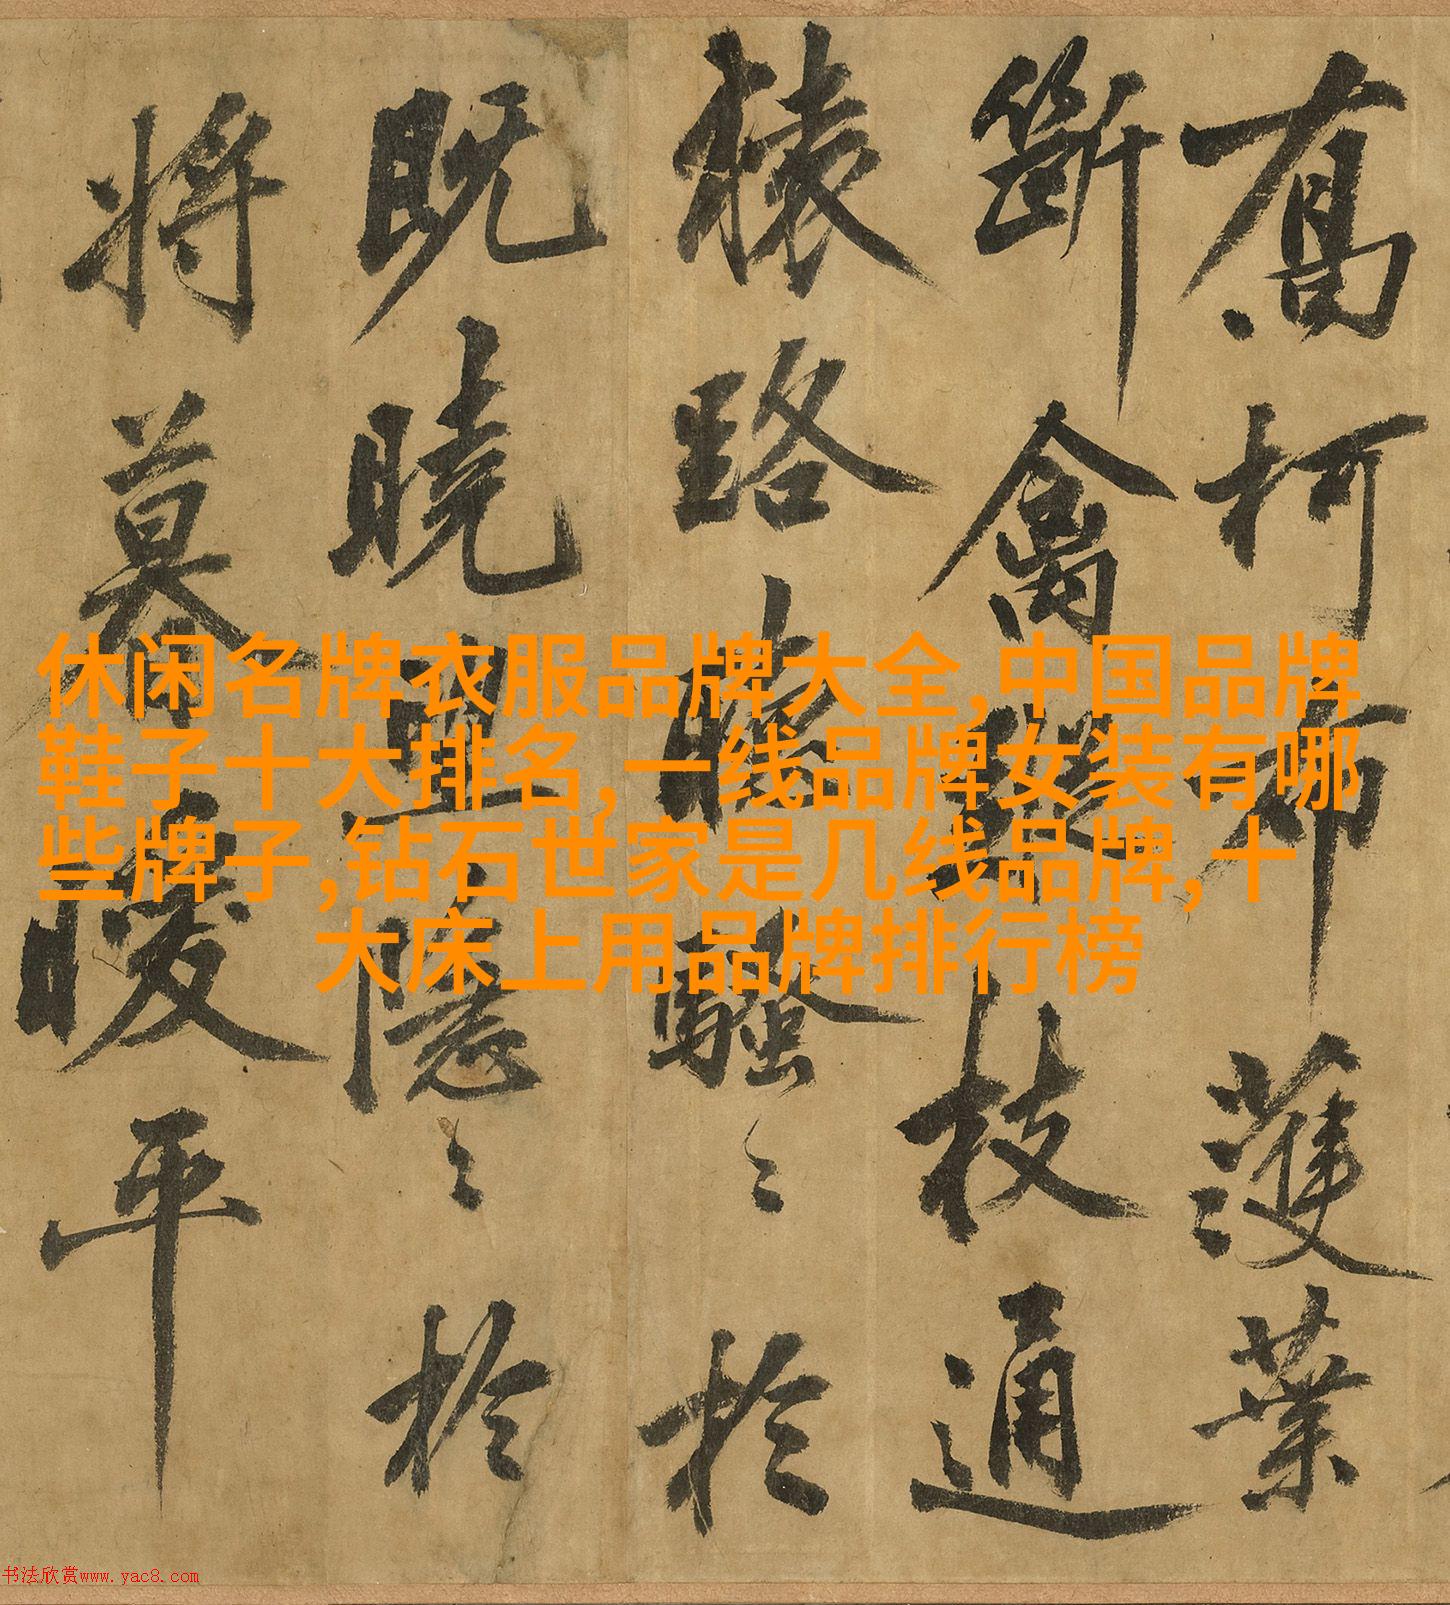 喬柯布濩葉
斷禽蹤枝通
猿路聽騷〻於
既曉望隱〻於
將暮暖平
休闲名牌衣服品牌大全,中国品牌
鞋子十大排名,一线品牌女装有哪
些牌子,钻石世家是几线品牌,十
大床上用品牌排行榜
书法欣赏www.yac8.com